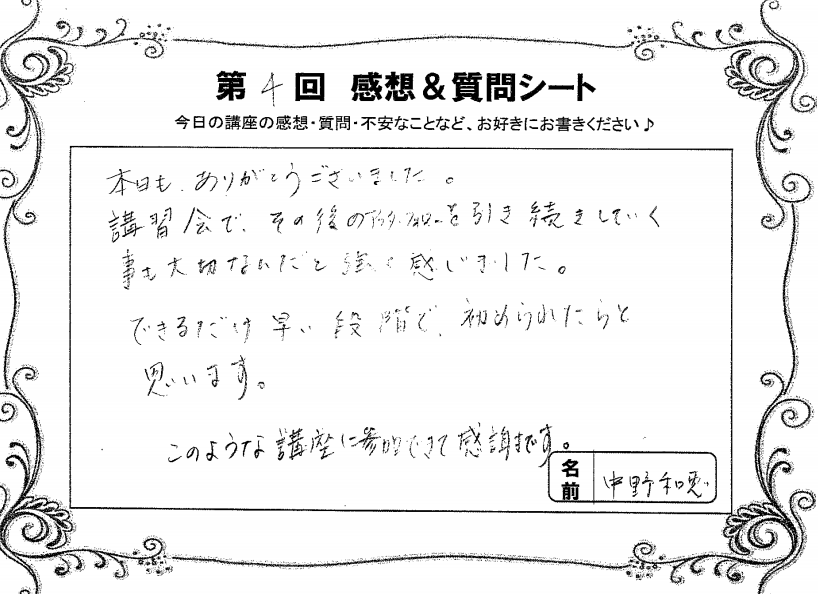 第4回 感想&質問シート
今日の講座の感想・質問・不安なことなど、お好きにお書きください♪
本日も、ありがとうございました。
講習会で、その後のアフターフォローを引き続きしていく
事も大切なんだと強く感じました。
できるだけ早い段階で、初められたらと
思います。
このような講座に参加できて感謝です。
名前 中野和恵